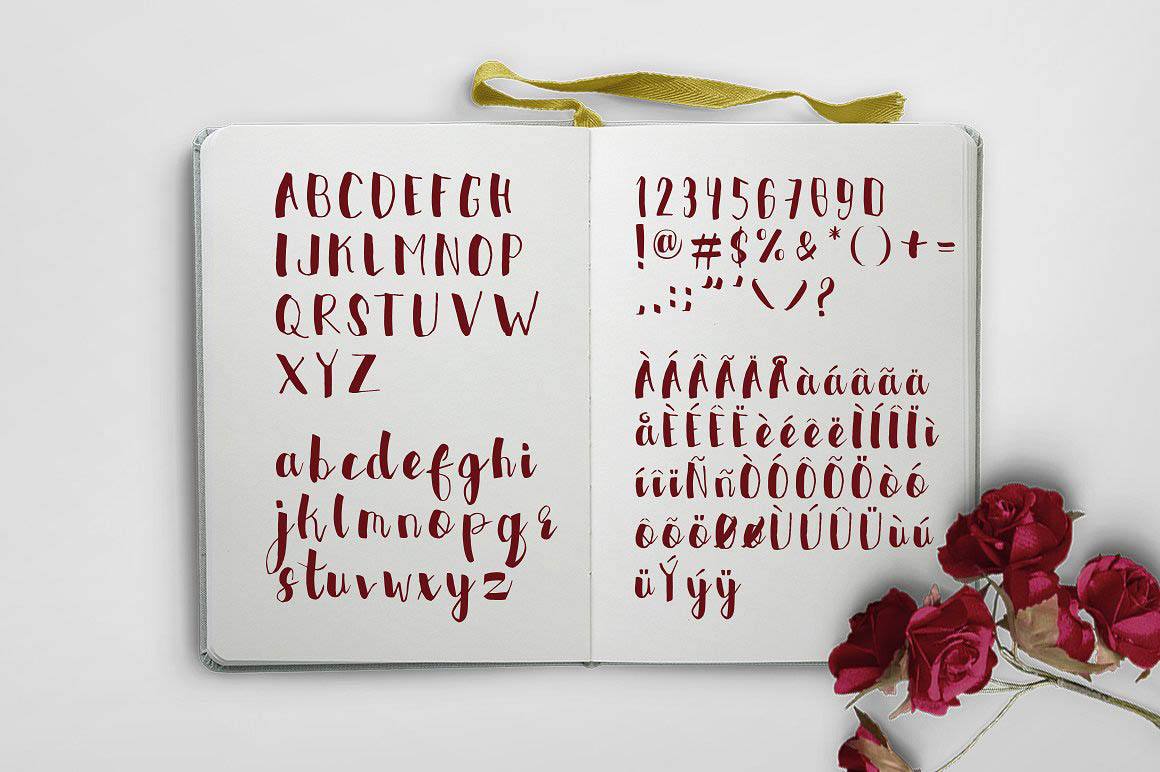 ABCDEFGH
IJKLMNOP
QRSTUVW
XYZ
abcdefghi
jklmnopqr
stuvwxyz
1234567890
!@#$%&*()+=
,.:;"'\/?
ÀÁÂÃÄÅàáâãä
åÈÉÊËèéêëÌÍÎÏì
íîïÑñÒÓÔÕÖòó
ôõöØøÙÚÛÜùú
üÝýÿ